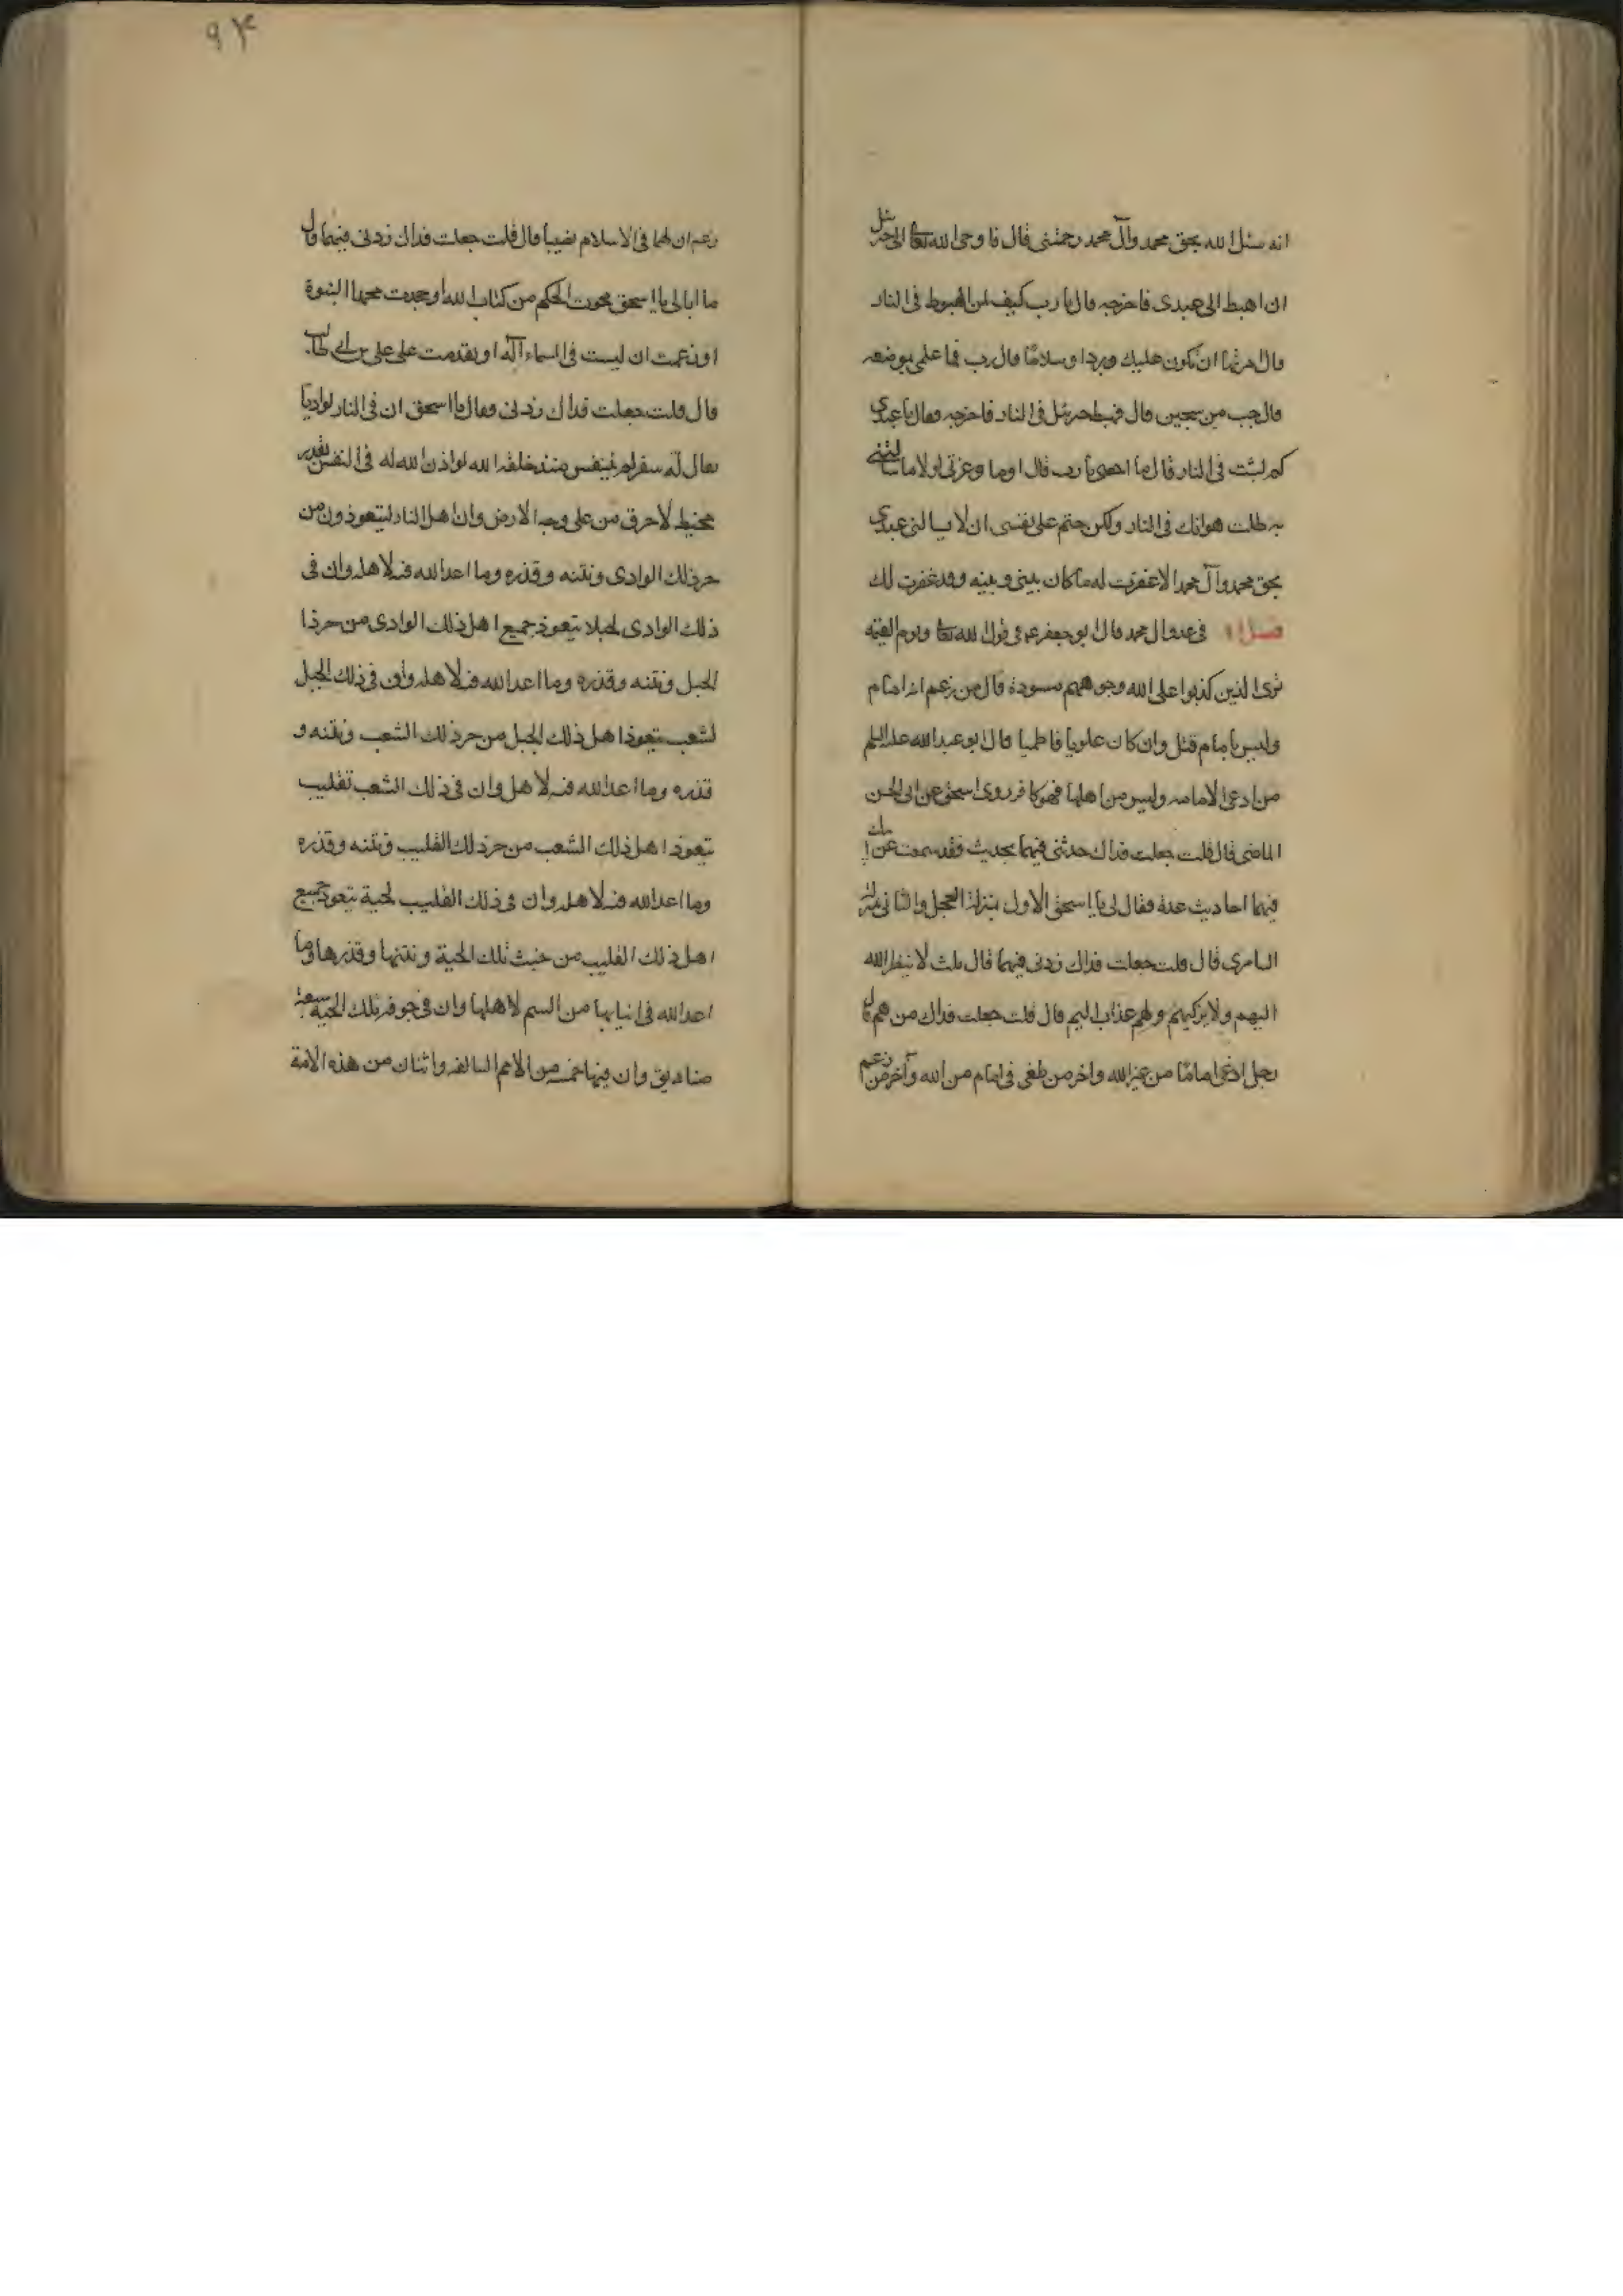 انه سئل الله بحق محمد وآل محمد رحمتنى قال فاوحى الله تعا الى جبرئيل
ان اهبط الى عبدى فاخرجه قال يا رب كيف لى بالهبوط فى النار
قال امرتها ان تكون عليك بردا وسلامًا قال رب فما علمى بموضعه
قال جب من سجين قال فهبط جبرئيل فى النار فاخرجه فقال يا عبدى
كم لبثت فى النار قال ما احصى يا رب قال اما وعزتى لولا ما سئلتنى
به لطلت هوانك فى النار ولكن حتم على نفسى ان لا يسالنى عبدى
بحق محمد وآل محمد الا غفرت له ما كان بينى وبينه وقد غفرت لك
فصل فى عدو ال محمد قال ابو جعفر ع فى قول الله تعا ويوم القيمه
ترى الذين كذبوا على الله وجوههم مسودة قال من زعم انه امام
وليس بامام قيل وان كان علويا فاطميا قال ابو عبد الله عليه السلم
من ادعى الامامه وليس من اهلها فهو كافر روى اسحق عن ابى الحسن
الماضى قال قلت جعلت فداك حدثنى فيهما بحديث فقد سمعت عن ابيك
فيهما احاديث عدة فقال لى يا اسحق الاول بمنزلة العجل والثانى بمنزلة
السامرى قال قلت جعلت فداك زدنى فيهما قال ثلث لا ينظر الله
اليهم ولا يزكيهم ولهم عذاب اليم قال قلت جعلت فداك من هم قال
رجل ادعى امامًا من غير الله واخر من طغى فى امام من الله وآخر من زعم
۹۴
زعم ان لهما فى الاسلام نصيبا قال قلت جعلت فداك زدنى فيهما قال
ما ابالى يا اسحق محوت الحكم من كتاب الله او جحدت محمدا النبوة
او زعمت ان ليست فى السماء آله او تقدمت على على بن ابى طالب
قال قلت جعلت فداك زدنى فقال يا اسحق ان فى النار لواديا
يقال له سقر لم يتنفس منذ خلقه الله لو اذن الله له فى التنفس بقدر
مخيط لاحرق من على وجه الارض وان اهل النار ليتعوذون من
حر ذلك الوادى ونتنه وقذره وما اعد الله فيه لاهله وان فى
ذلك الوادى لجبلا يتعوذ جميع اهل ذلك الوادى من حر ذا
الجبل ونتنه وقذره وما اعد الله فيه لاهله وان فى ذلك الجبل
لشعب يتعوذ اهل ذلك الجبل من حر ذلك الشعب ونتنه و
قذره وما اعد الله فيه لاهله وان فى ذلك الشعب لقليب
يتعوذ اهل ذلك الشعب من حر ذلك القليب ونتنه وقذره
وما اعد الله فيه لاهله وان فى ذلك القليب لحية يتعوذ جميع
اهل ذلك القليب من خبث تلك الحية ونتنها وقذرها وما
اعد الله فى انيابها من السم لاهلها وان فى جوف تلك الحية سبعة
صناديق وان فيها خمسه من الامم السالفه واثنان من هذه الامة